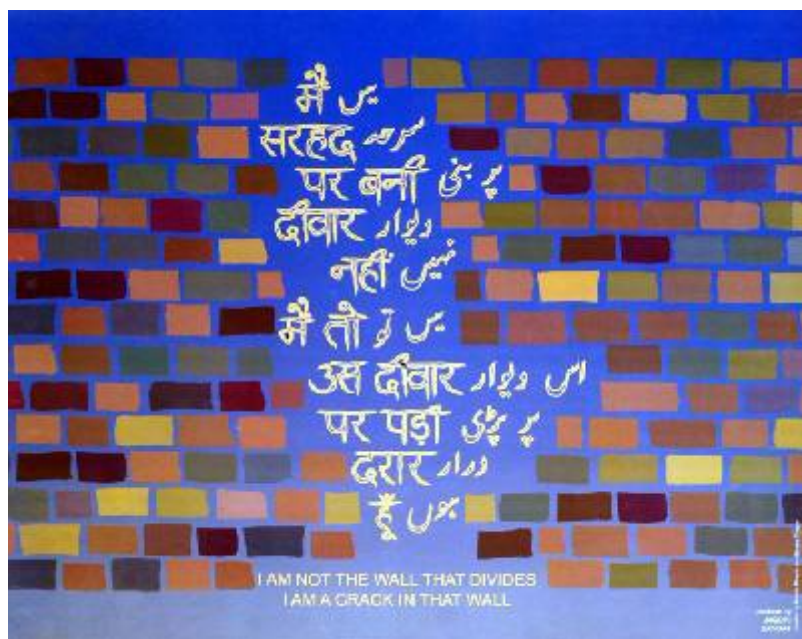 मैं میں
सरहद سرحد
पर बनी پر بنی
दीवार دیوار
नहीं نہیں
मैं तो میں تو
उस दीवार اس دیوار
पर पड़ी پر پڑی
दरार درار
हूँ ہوں
I AM NOT THE WALL THAT DIVIDES
I AM A CRACK IN THAT WALL